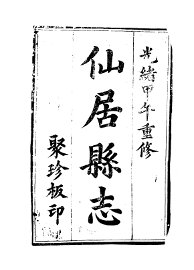 光緒甲午重修
仙居縣志
聚珍板印